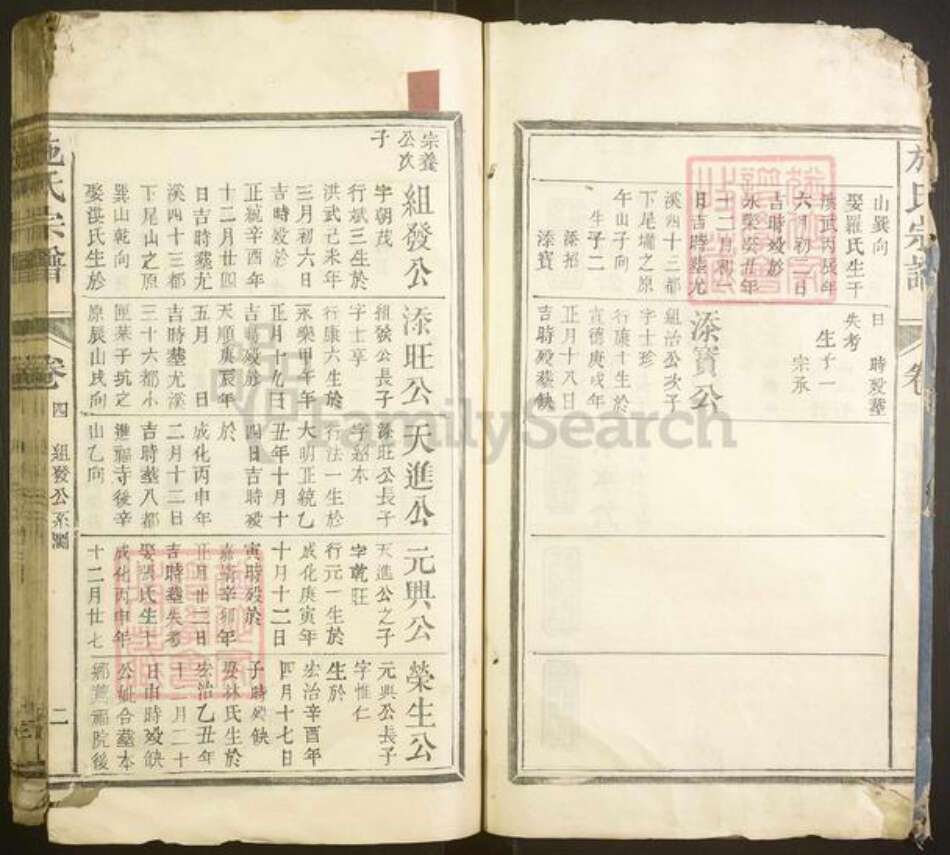 山巽向
娶羅氏生于
洪武丙辰年
六月初一日
吉時殁於
永樂辛丑年
十二月初一
日吉時墓尤
溪四十三都
下尾墉之原
午山子向
生子二
添招
添寶
日 時殁墓
失考
生子一
宗承
添寶公
組治公次子
字士珍
行康十生於
宣德庚戌年
正月十八日
吉時殁墓缺
宗養
公次
子
組發公
字朝茂
行斌三生於
洪武己未年
三月初六日
吉時殁於
正統辛酉年
十二月廿四
日吉時墓尤
溪四十三都
下尾山之原
巽山乾向
娶洪氏生於
添旺公
組發公長子
字士享
行康六生於
永樂甲午年
正月十九日
吉時殁於
天順庚辰年
五月 日
吉時墓尤溪
三十六都小
匣菜子坑之
原辰山戌向
天進公
添旺公長子
字紹本
行法一生於
大明正統乙
丑年十月十
四日吉時殁
於
成化丙申年
二月十二日
吉時墓八都
進福寺後辛
山乙向
元興公
天進公之子
字乾旺
行元一生於
成化庚寅年
十月十二日
寅時殁於
嘉靖辛卯年
正月廿二日
吉時墓失考
娶張氏生于
成化丙申年
十二月廿七
榮生公
元興公長子
字惟仁
生於
宏治辛酉年
四月十七日
子時殁缺
娶林氏生於
宏治乙丑年
十二月二十
日由時殁缺
公妣合墓本
鄉薦福院後
施氏宗譜
卷
四
組發公系圖
二
施氏宗譜
卷
FamilySearch